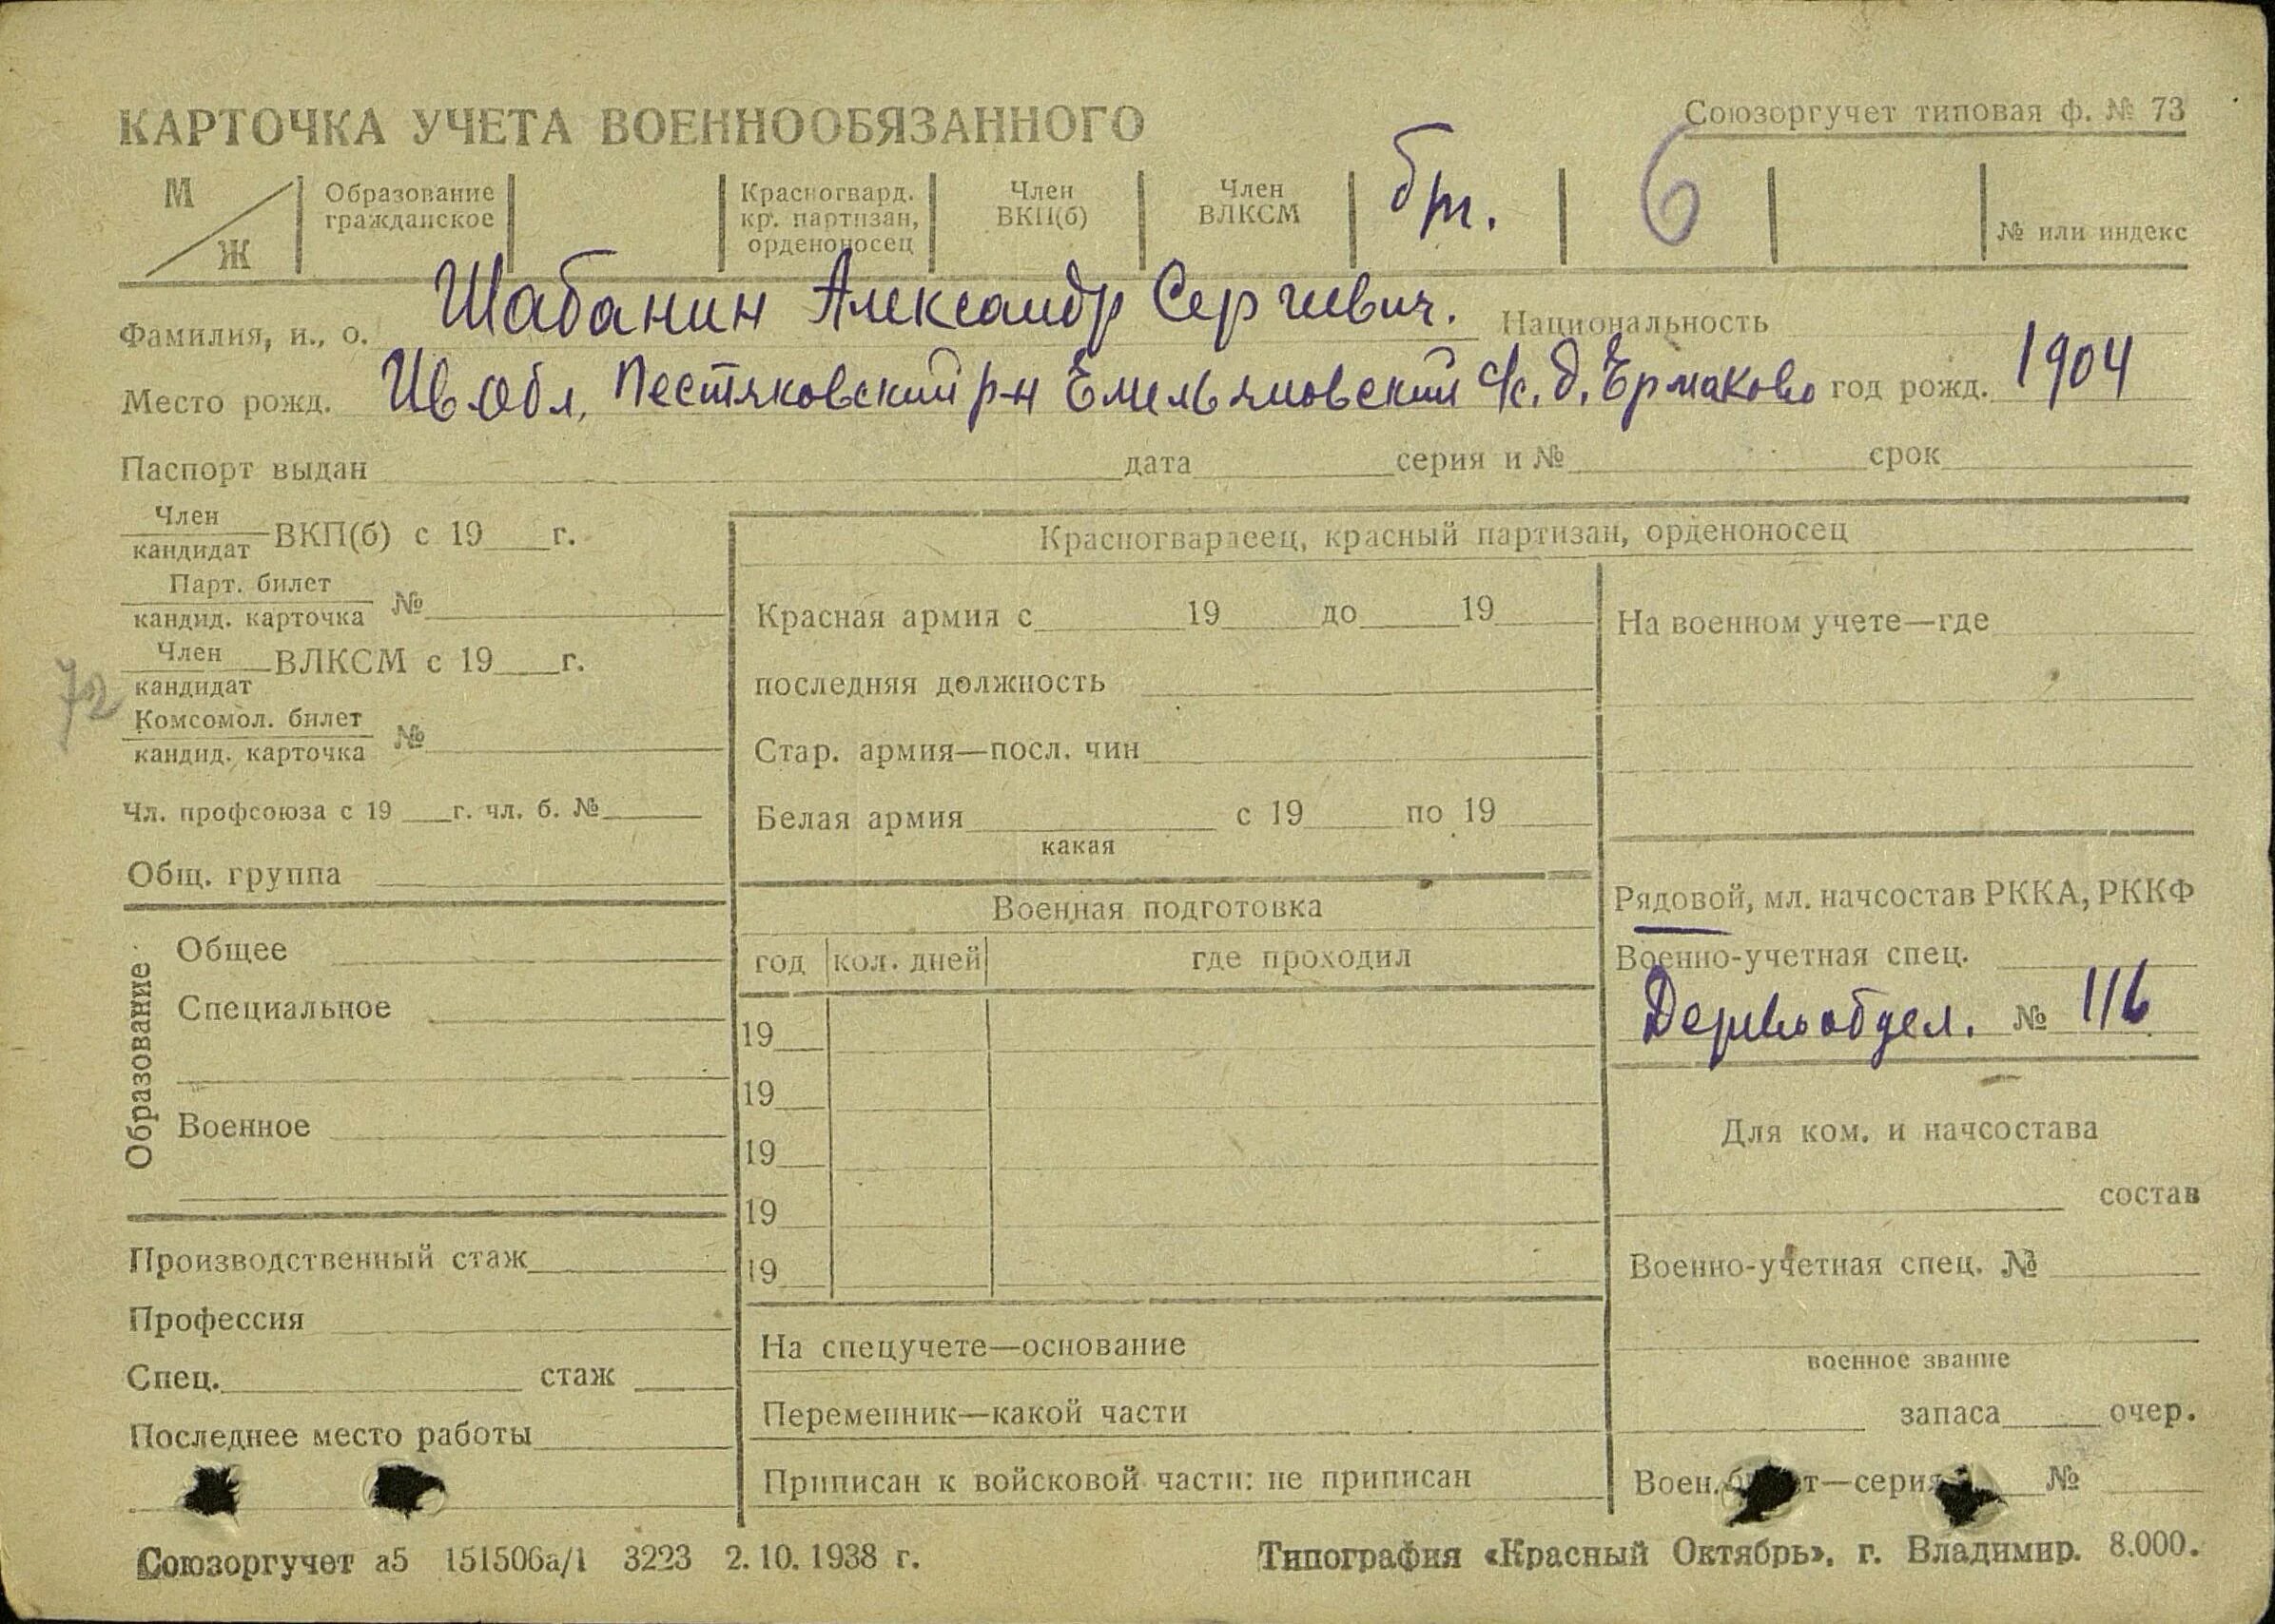 КАРТОЧКА УЧЕТА ВОЕННООБЯЗАННОГО
Союзоргучет типовая ф. № 73
М
Ж
Образование гражданское
Красногвард. кр. партизан, орденоносец
Член ВКП(б)
Член ВЛКСМ
бт.
6
№ или индекс
Фамилия, и., о. Шабанин Александр Сергиевич. Национальность
Место рожд. Ив. Обл. Пестяковский р-н Емельяновский с/с. д. Ермаково год рожд. 1904
Паспорт выдан дата серия и № срок
Член
кандидат ВКП(б) с 19 г.
Парт. билет
кандид. карточка №
Член
кандидат ВЛКСМ с 19 г.
72
Комсомол. билет
кандид. карточка №
Чл. профсоюза с 19 г. чл. б. №
Общ. группа
Образование
Общее
Специальное
Военное
Производственный стаж
Профессия
Спец. стаж
Последнее место работы
Красногвардеец, красный партизан, орденоносец
Красная армия с 19 до 19
последняя должность
Стар. армия—посл. чин
Белая армия с 19 по 19
какая
Военная подготовка
год кол. дней где проходил
19
19
19
19
19
На спецучете—основание
Переменник—какой части
Приписан к войсковой части: не приписан
На военном учете—где
Рядовой, мл. начсостав РККА, РККФ
Военно-учетная спец.
Деревообдел. № 116
Для ком. и начсостава
состав
Военно-учетная спец. №
военное звание
запаса очер.
Воен. билет—серия №
Союзоргучет а5 151506а/1 3223 2. 10. 1938 г.
Типография «Красный Октябрь», г. Владимир. 8.000.